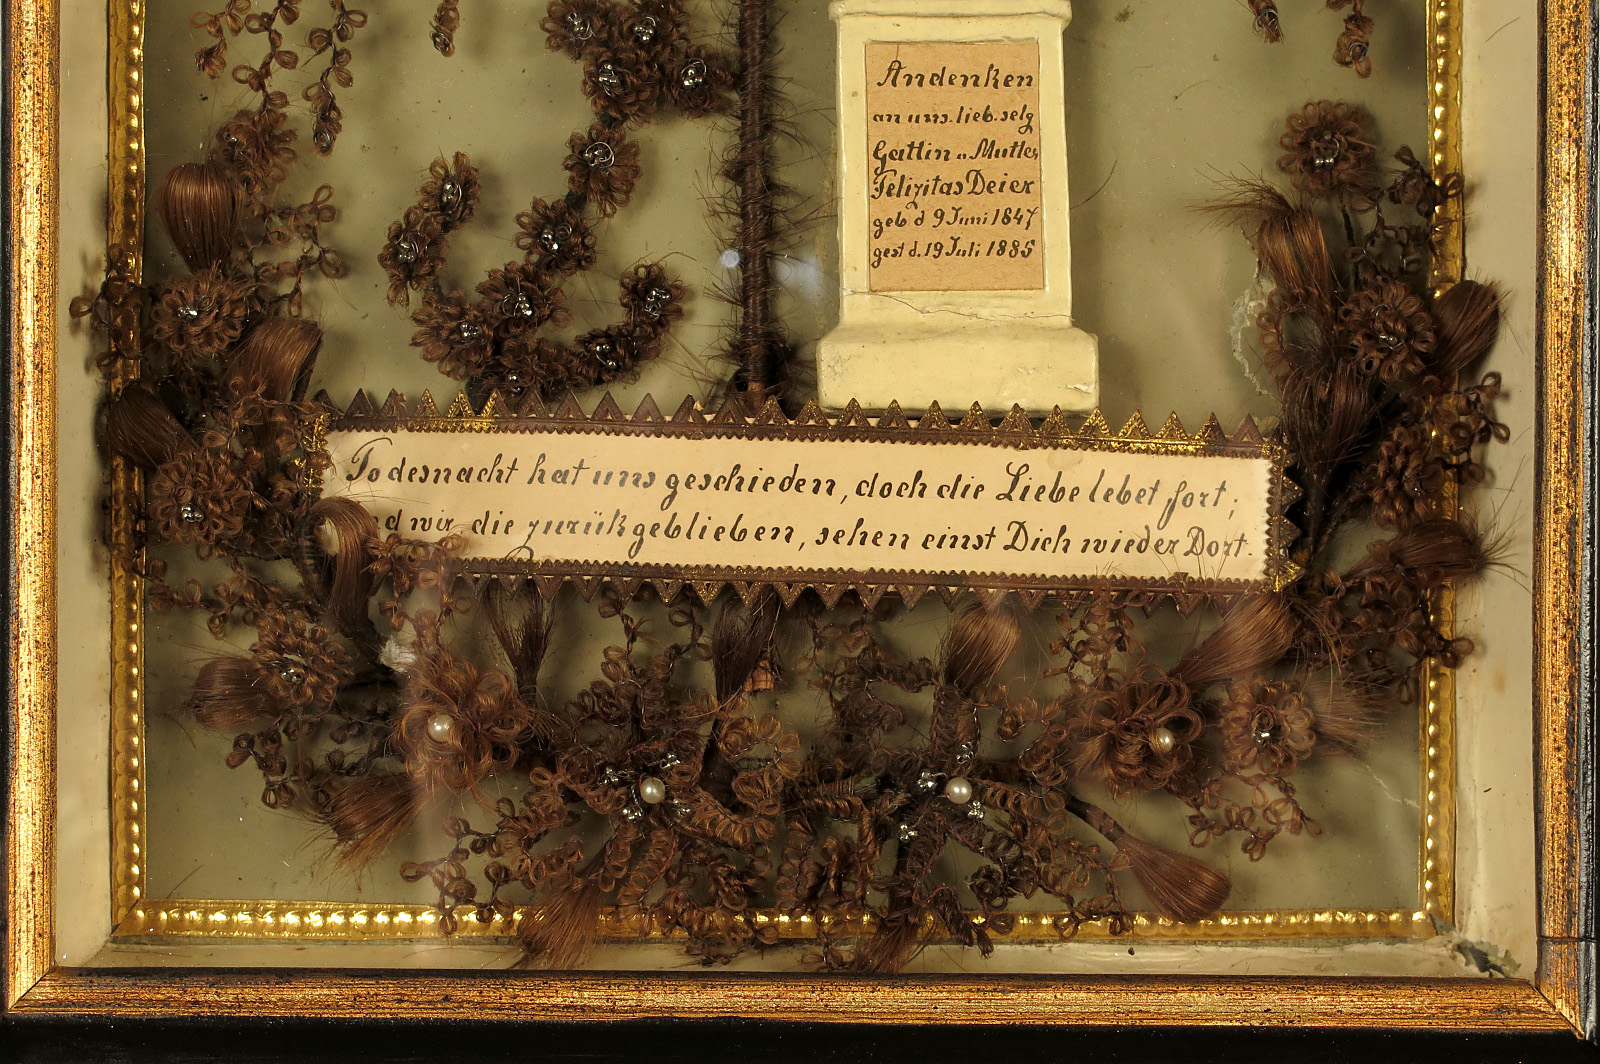 Andenken
an uns. lieb. selg
Gattin u Mutter
Felizitas Deier
geb d 9 Juni 1847
gest d. 19 Juli 1885
Todesnacht hat uns geschieden, doch die Liebe lebet fort;
wir die zurükgeblieben, sehen einst Dich wieder Dort.